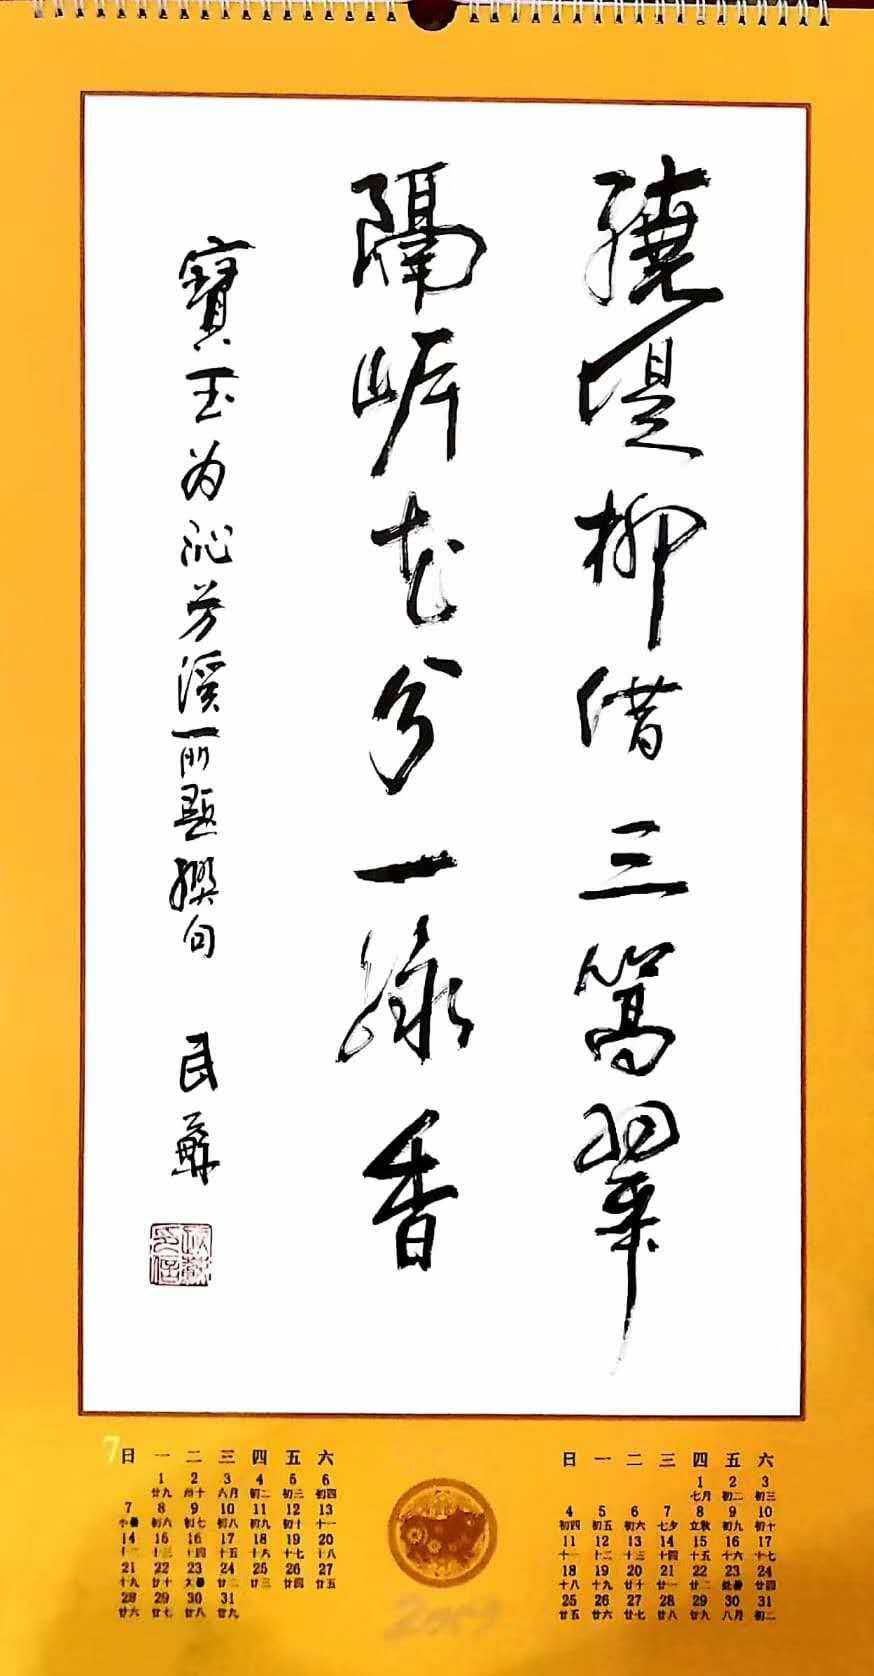 繞堤柳借三篙翠
隔岸花分一脉香
寶玉为沁芳溪所题撰句 民蘇
7
日 一 二 三 四 五 六
1 2 3 4 5 6
廿九 三十 六月 初二 初三 初四
7 8 9 10 11 12 13
小暑 初六 初七 初八 初九 初十 十一
14 15 16 17 18 19 20
十二 十三 十四 十五 十六 十七 十八
21 22 23 24 25 26 27
十九 廿十 大暑 廿二 廿三 廿四 廿五
28 29 30 31
廿六 廿七 廿八 廿九
2019
日 一 二 三 四 五 六
1 2 3
七月 初二 初三
4 5 6 7 8 9 10
初四 初五 初六 七夕 立秋 初九 初十
11 12 13 14 15 16 17
十一 十二 十三 十四 十五 十六 十七
18 19 20 21 22 23 24
十八 十九 廿十 廿一 廿二 处暑 廿四
25 26 27 28 29 30 31
廿五 廿六 廿七 廿八 廿九 八月 初二